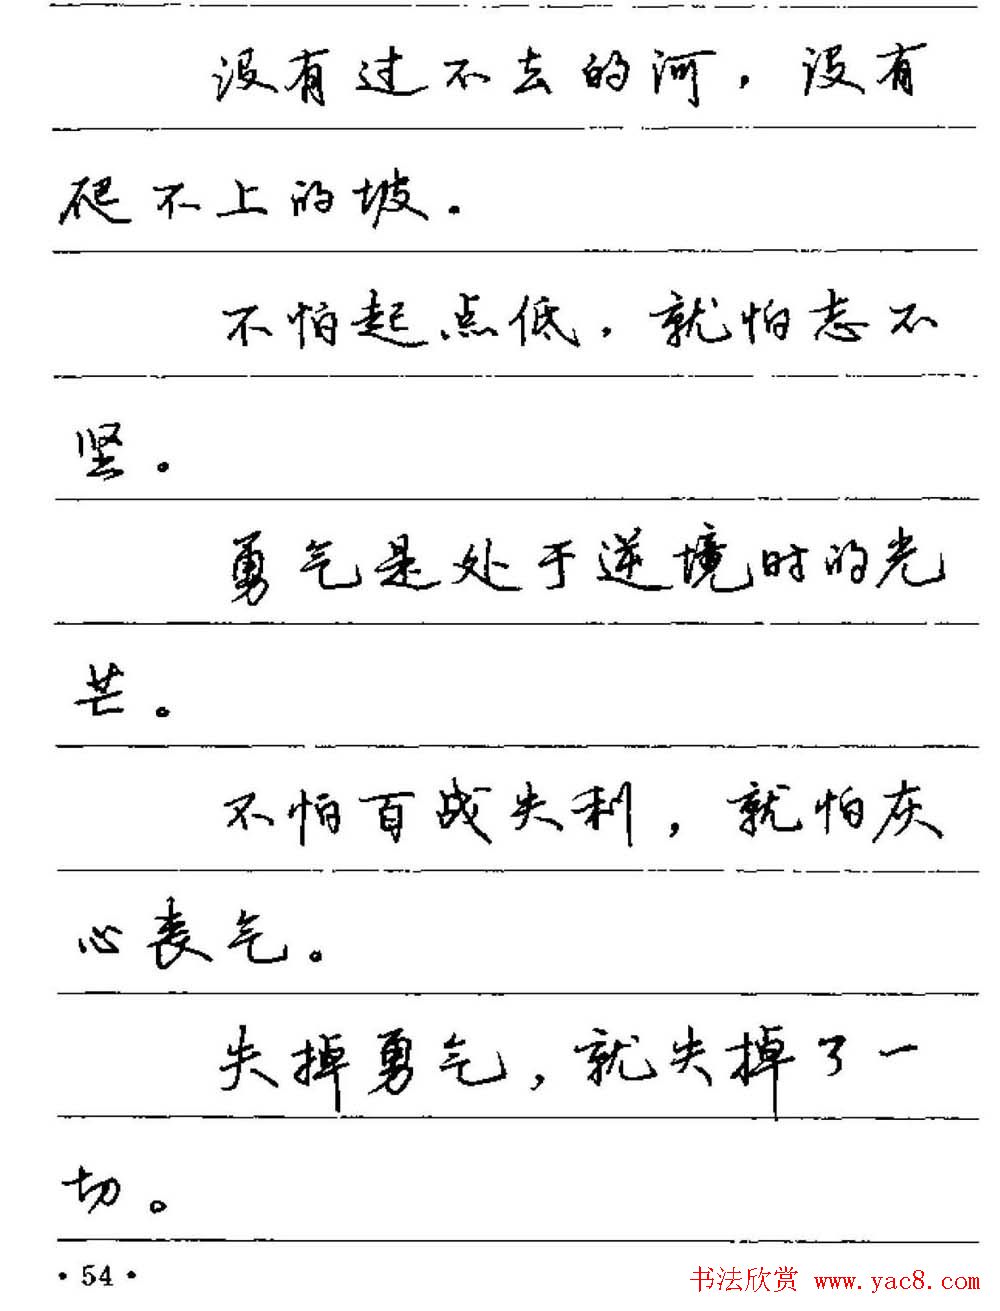 没有过不去的河，没有
爬不上的坡.
不怕起点低，就怕志不
坚。
勇气是处于逆境时的光
芒。
不怕百战失利，就怕灰
心丧气。
失掉勇气，就失掉了一
切。
·54·
书法欣赏 www.yac8.com